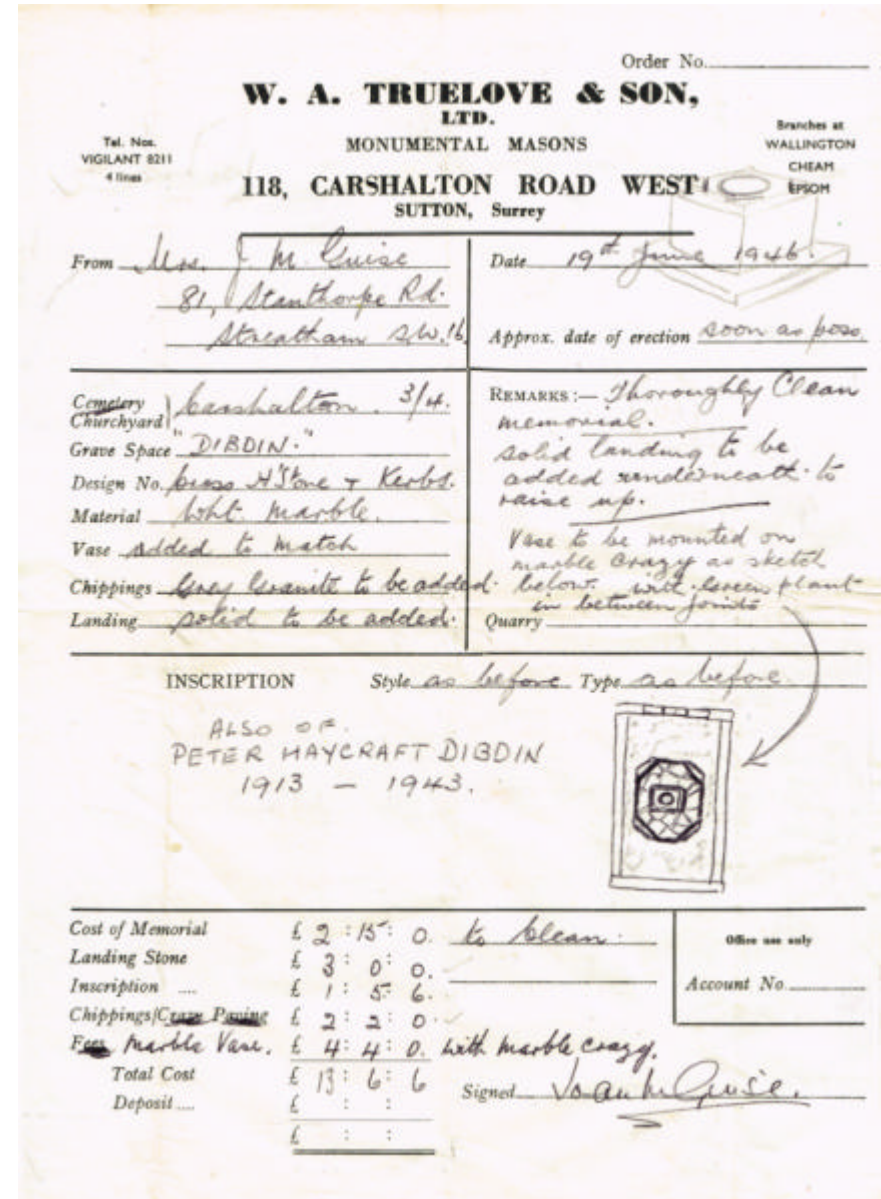 Order No.
W. A. TRUELOVE & SON,
LTD.
Tel. Nos.
VIGILANT 8211
4 lines
MONUMENTAL MASONS
Branches at
WALLINGTON
CHEAM
EPSOM
118, CARSHALTON ROAD WEST
SUTTON, Surrey
From Mrs. J. M. Guise
81, Stanthorpe Rd.
Streatham S.W.16.
Date 19th June 1946.
Approx. date of erection soon as poss.
Cemetery
Churchyard } Carshalton. 3/4.
Grave Space "DIBDIN."
Design No. Cross H'Stone & Kerbs.
Material Wht. Marble.
Vase added to match
Chippings Grey Granite to be added.
Landing solid to be added.
REMARKS :— Thoroughly Clean
memorial.
solid landing to be
added underneath to
raise up.
Vase to be mounted on
marble crazy as sketch
below. with Green plant
in between joints
Quarry
INSCRIPTION Style as before Type as before.
ALSO OF.
PETER HAYCRAFT DIBDIN
1913 — 1943.
Cost of Memorial £ 2 : 15 : 0. to Clean.
Landing Stone £ 3 : 0 : 0.
Inscription .... £ 1 : 5 : 6.
Chippings/Crazy Paving £ 2 : 2 : 0.
Fees Marble Vase. £ 4 : 4 : 0. with marble crazy.
Total Cost £ 13 : 6 : 6
Deposit .... £ : :
£ : :
Office use only
Account No.
Signed Joan M Guise.